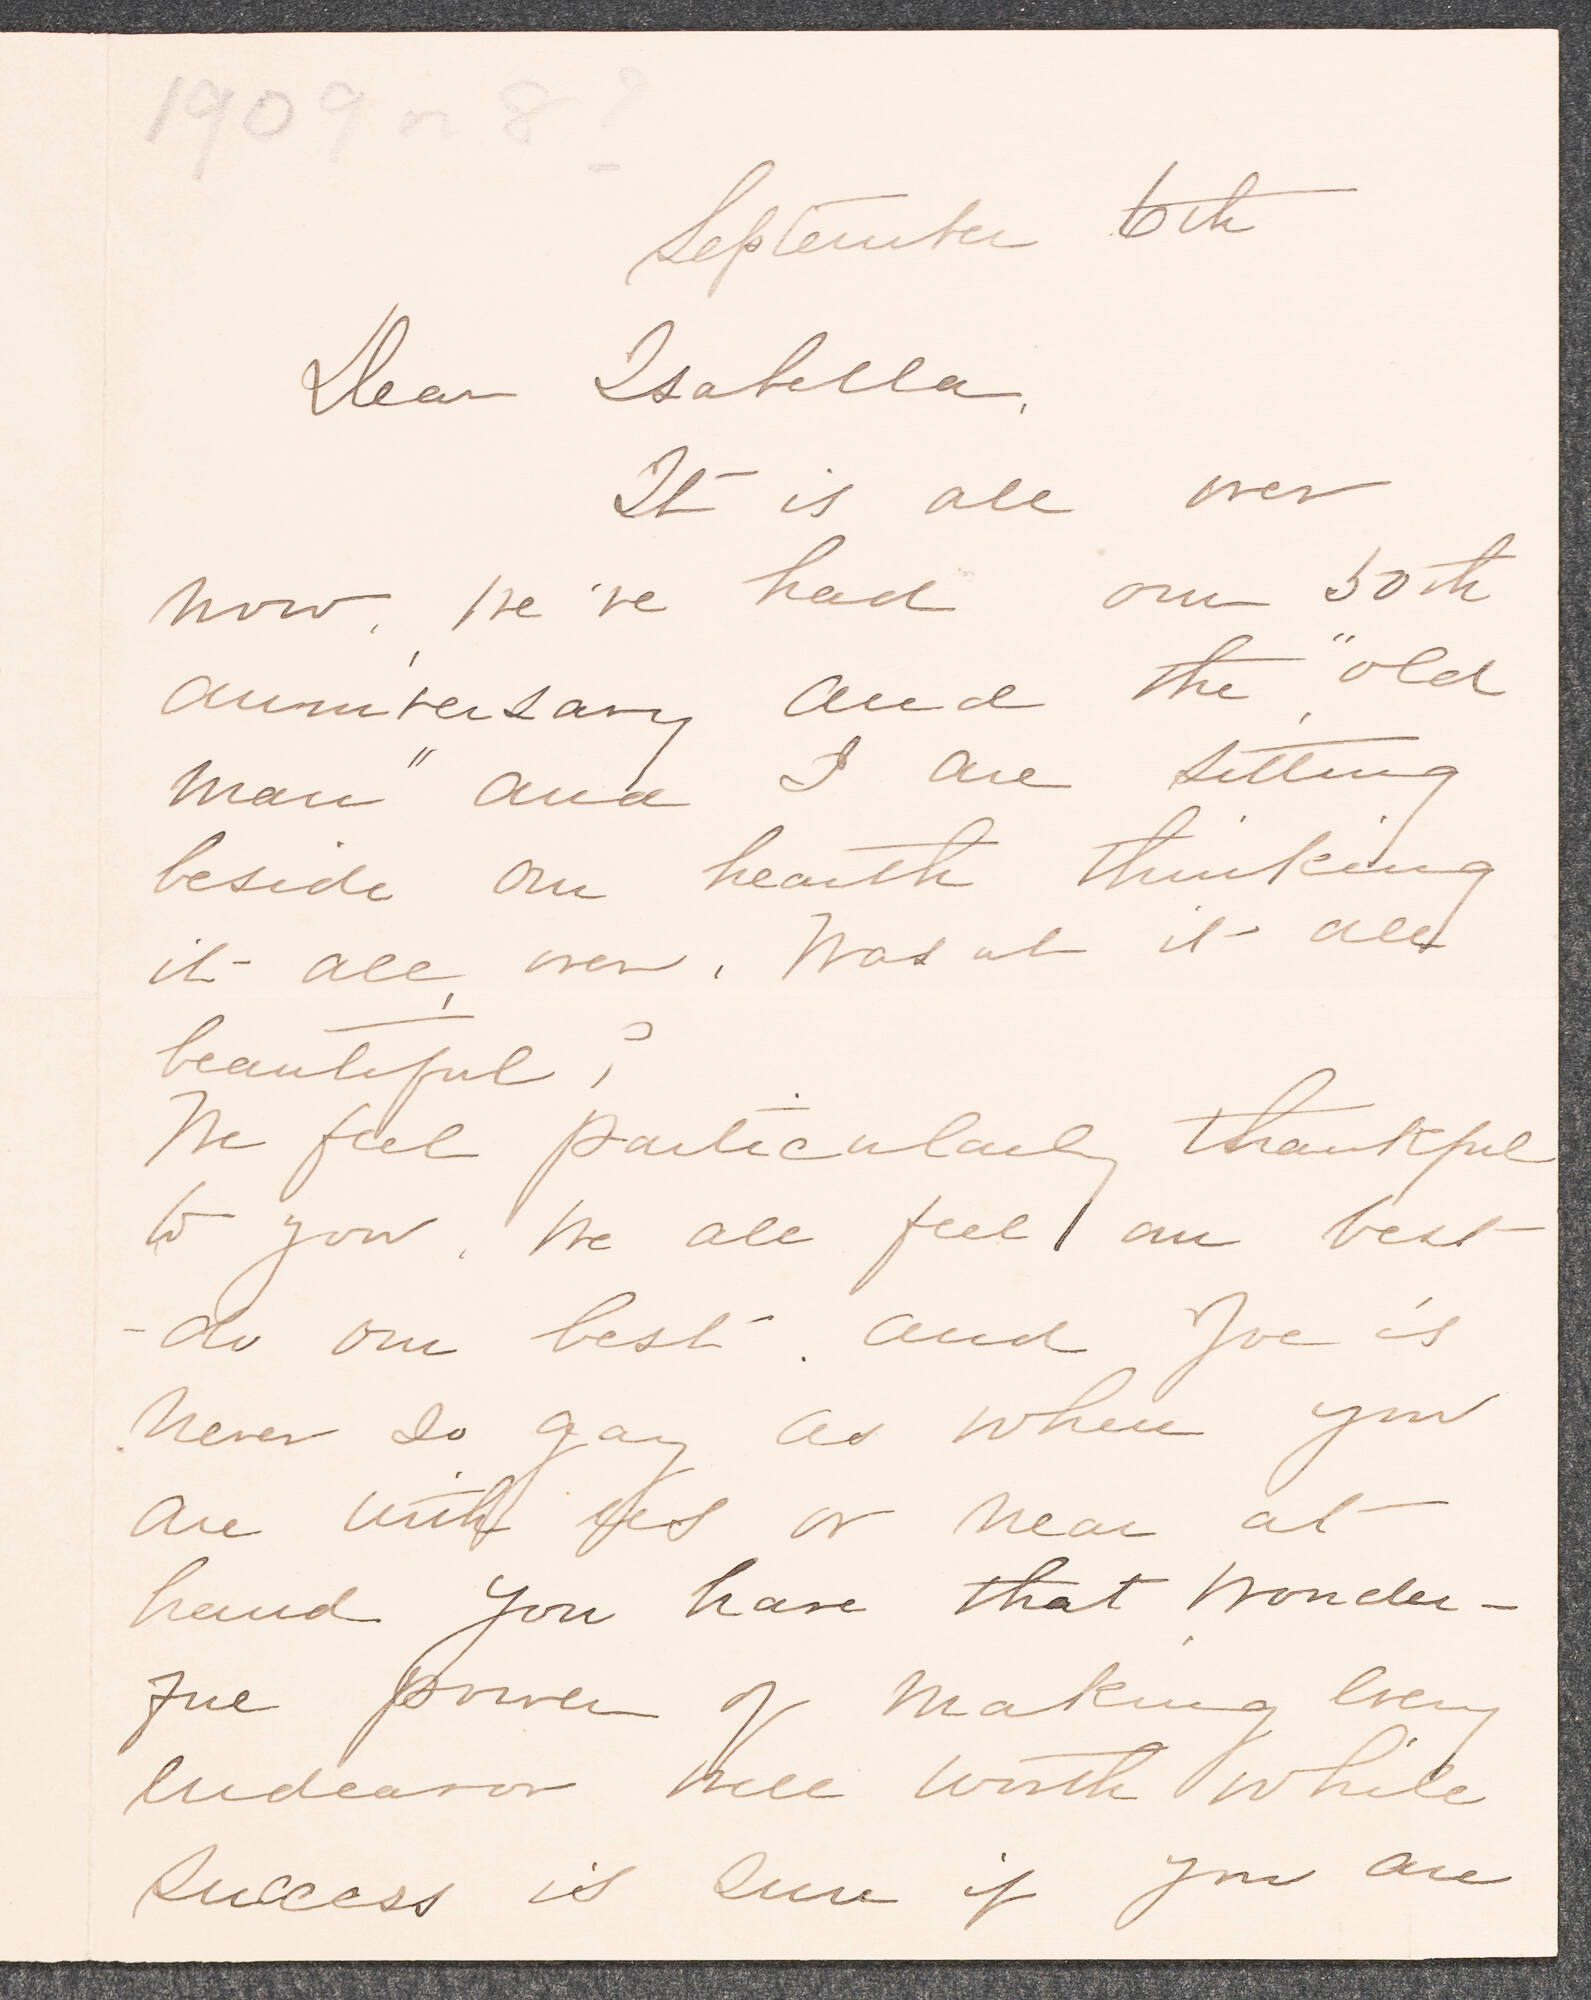 1909 or 8?
September 6th
Dear Isabella,
It is all over
now. We've had our 50th
anniversary and the "old
man" and I are sitting
beside our hearth thinking
it all over. Wasnt it all
beautiful?
We feel particularly thankful
to you. We all feel our best
- do our best. and Joe is
never so gay as when you
are with us or near at
hand You have that wonder-
ful power of making every
endeavor well worth while
success is sure if you are